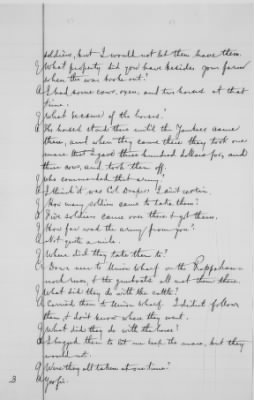 soldiers, but I would not let them have them.
Q What property did you have besides your farm
when the war broke out?
A I had some cows, oxen, and two horses at that
time.
Q What became of the horses?
A The horses stood there until the Yankees came
there, and when they came there they took one
mare that I gave three hundred dollars for, and
three cows, and took them off.
Q Who commanded that army?
A I think it was Col Draper. I ain't certain.
Q How many soldiers came to take them?
A Five soldiers came over there & got them.
Q How far was the army from you?
A Not quite a mile.
Q Where did they take them to?
A Down to Union Wharf on the Rappahan-
nock river, & the gunboats all met them there.
Q What did they do with the cattle?
A Carried them to Union Wharf. I didn't follow
them, & don't know where they went.
Q What did they do with the horse?
A I begged them to let me keep the mare, but they
would not.
Q Were they all taken at one time?
A Yes sir.
3